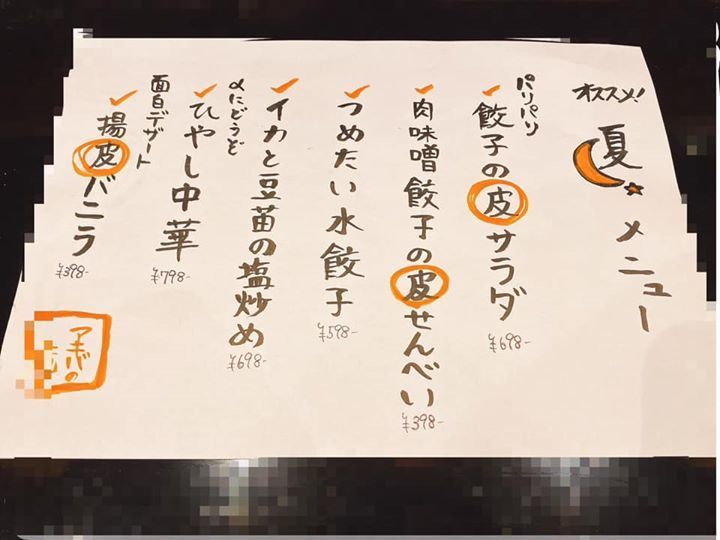 オススメ!
夏
メニュー
パリパリ
餃子の皮サラダ
¥698-
肉味噌餃子の皮せんべい
¥398-
つめたい水餃子
¥598-
イカと豆苗の塩炒め
¥698-
〆にどうぞ
ひやし中華
¥798-
面白デザート
揚皮バニラ
¥398-